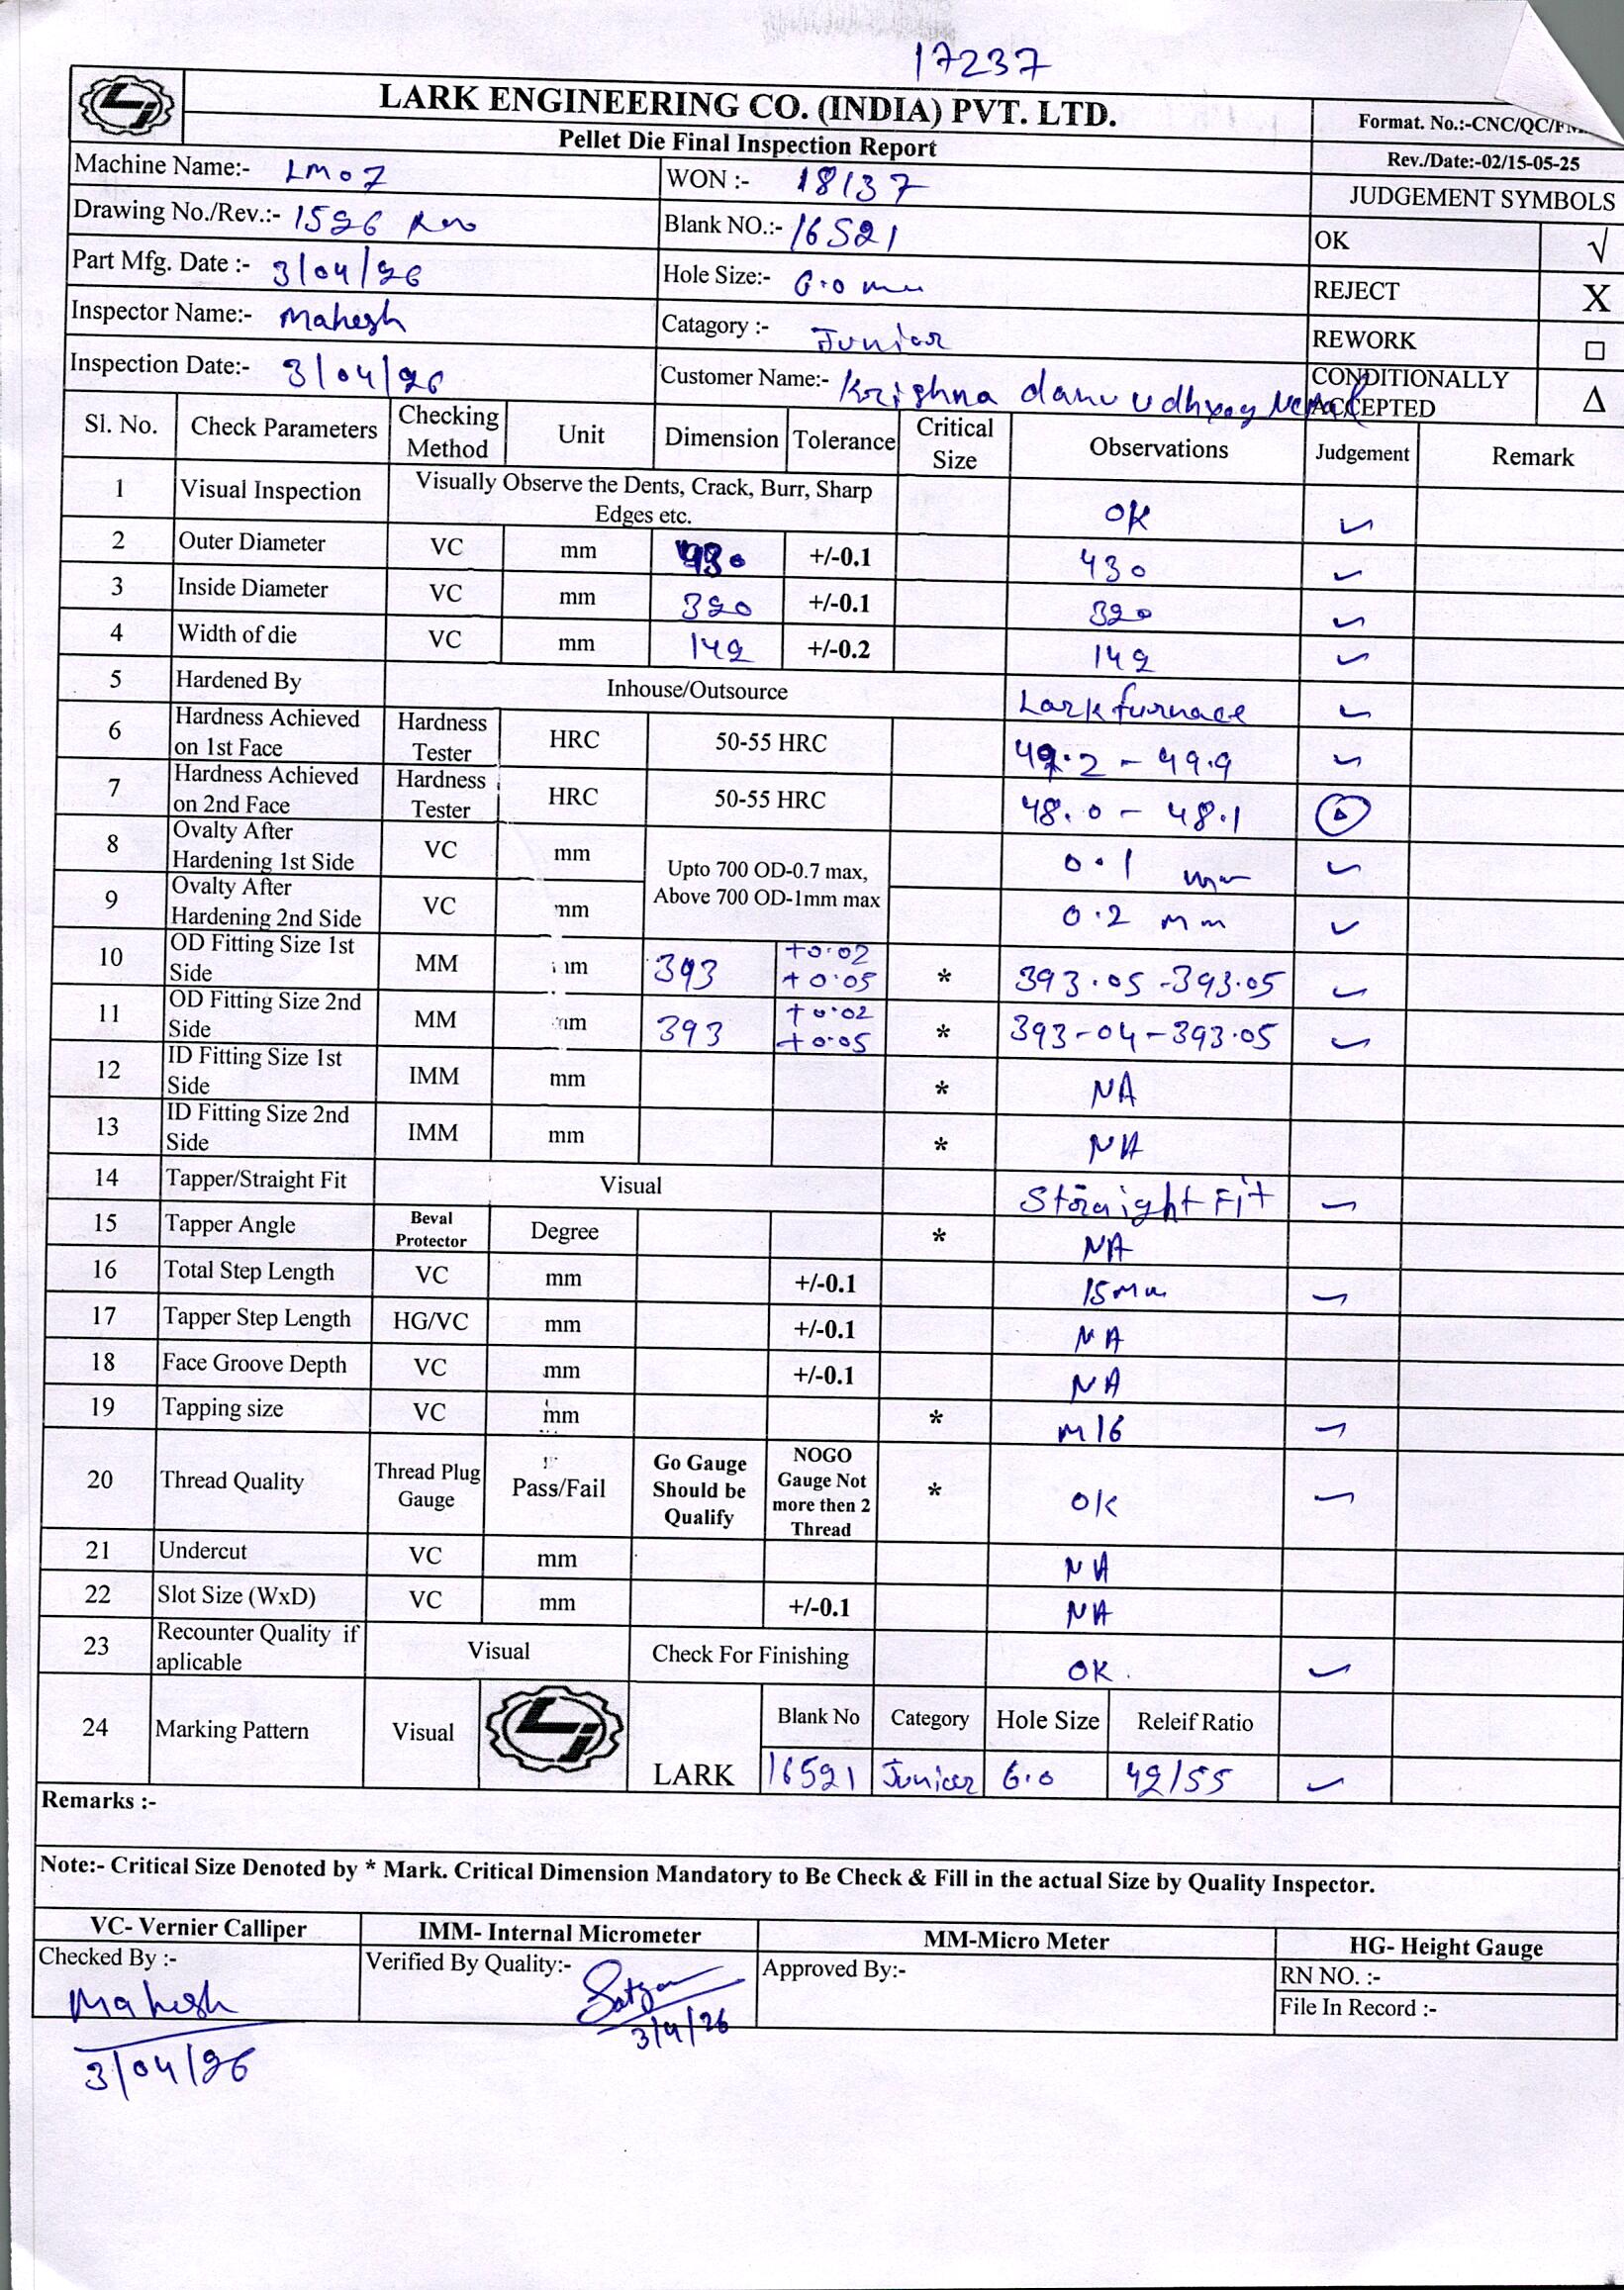 17237
LARK ENGINEERING CO. (INDIA) PVT. LTD.
Pellet Die Final Inspection Report
Format. No.:-CNC/QC/
Rev./Date:-02/15-05-25
JUDGEMENT SYMBOLS
OK √
REJECT X
REWORK □
CONDITIONALLY ACCEPTED Δ
Machine Name:- LM07
WON :- 18137
Drawing No./Rev.:- 1526
Blank NO.:- 16521
Part Mfg. Date :- 3/04/26
Hole Size:- 6.0 mm
Inspector Name:- Mahesh
Catagory :- Junior
Inspection Date:- 3/04/26
Customer Name:- Krishna danu udhyog
Sl. No. Check Parameters Checking Method Unit Dimension Tolerance Critical Size Observations Judgement Remark
1 Visual Inspection Visually Observe the Dents, Crack, Burr, Sharp Edges etc. OK ✓
2 Outer Diameter VC mm 430 +/-0.1 430 ✓
3 Inside Diameter VC mm 320 +/-0.1 320 ✓
4 Width of die VC mm 142 +/-0.2 142 ✓
5 Hardened By Inhouse/Outsource Lark furnace ✓
6 Hardness Achieved on 1st Face Hardness Tester HRC 50-55 HRC 49.2 - 49.9 ✓
7 Hardness Achieved on 2nd Face Hardness Tester HRC 50-55 HRC 48.0 - 48.1 Δ
8 Ovalty After Hardening 1st Side VC mm Upto 700 OD-0.7 max, Above 700 OD-1mm max 0.1 mm ✓
9 Ovalty After Hardening 2nd Side VC mm 0.2 mm ✓
10 OD Fitting Size 1st Side MM mm 393 +0.02 +0.05 * 393.05 -393.05 ✓
11 OD Fitting Size 2nd Side MM mm 393 +0.02 +0.05 * 393-04-393.05 ✓
12 ID Fitting Size 1st Side IMM mm * NA
13 ID Fitting Size 2nd Side IMM mm * NA
14 Tapper/Straight Fit Visual Straight Fit ✓
15 Tapper Angle Beval Protector Degree * NA
16 Total Step Length VC mm +/-0.1 15mm ✓
17 Tapper Step Length HG/VC mm +/-0.1 NA
18 Face Groove Depth VC mm +/-0.1 NA
19 Tapping size VC mm * M16 ✓
20 Thread Quality Thread Plug Gauge Pass/Fail Go Gauge Should be Qualify NOGO Gauge Not more then 2 Thread * OK ✓
21 Undercut VC mm NA
22 Slot Size (WxD) VC mm +/-0.1 NA
23 Recounter Quality if aplicable Visual Check For Finishing OK ✓
24 Marking Pattern Visual LARK Blank No Category Hole Size Releif Ratio
16521 Junior 6.0 42/55 ✓
Remarks :-
Note:- Critical Size Denoted by * Mark. Critical Dimension Mandatory to Be Check & Fill in the actual Size by Quality Inspector.
VC- Vernier Calliper IMM- Internal Micrometer MM-Micro Meter HG- Height Gauge
Checked By :- Mahesh 3/04/26
Verified By Quality:- 3/4/26
Approved By:-
RN NO. :-
File In Record :-